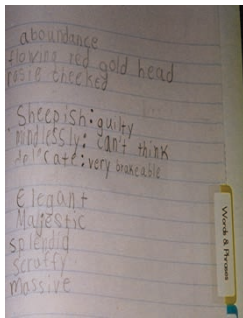 aboundance
flowing red gold head
rosie cheeked
Sheepish: guilty
mindlessly: can't think
delecate: very breakable
Elegant
Majestic
splendid
scruffy
massive
Words & Phrases